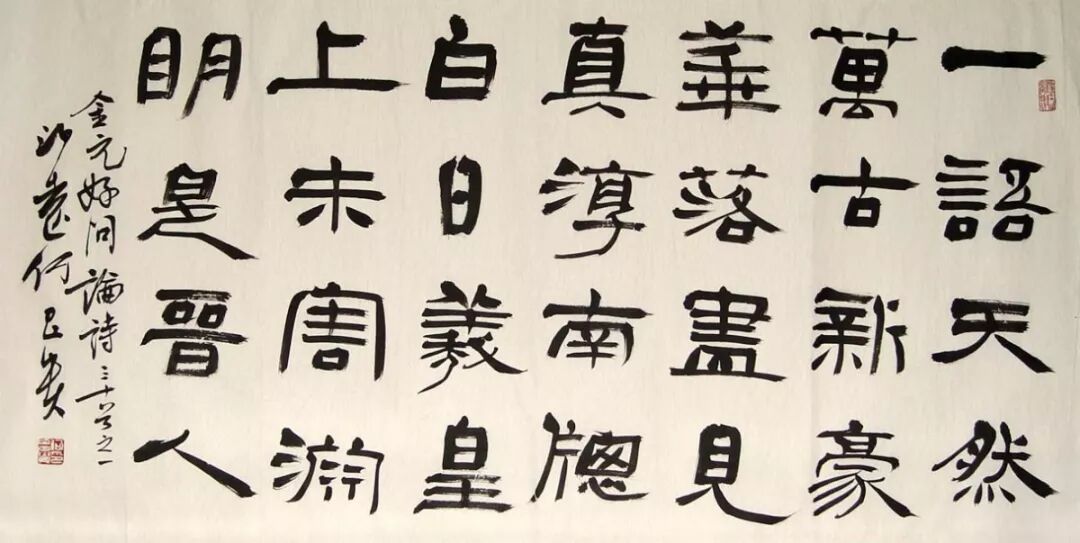 一語天然
萬古新豪
華落盡見
真淳南牕
白日羲皇
上未害淵
明是晉人
金元好问論詩三十首之一